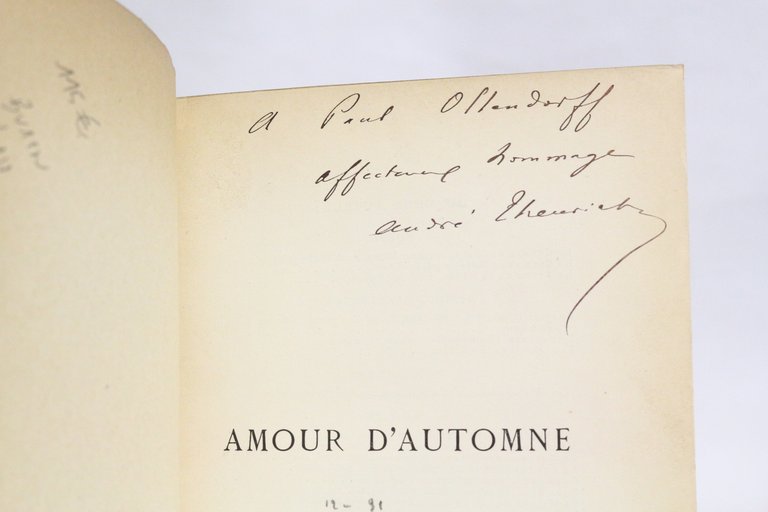 A Paul Ollendorff
affectueux hommage
André Theuriet
AMOUR D'AUTOMNE
12- 91